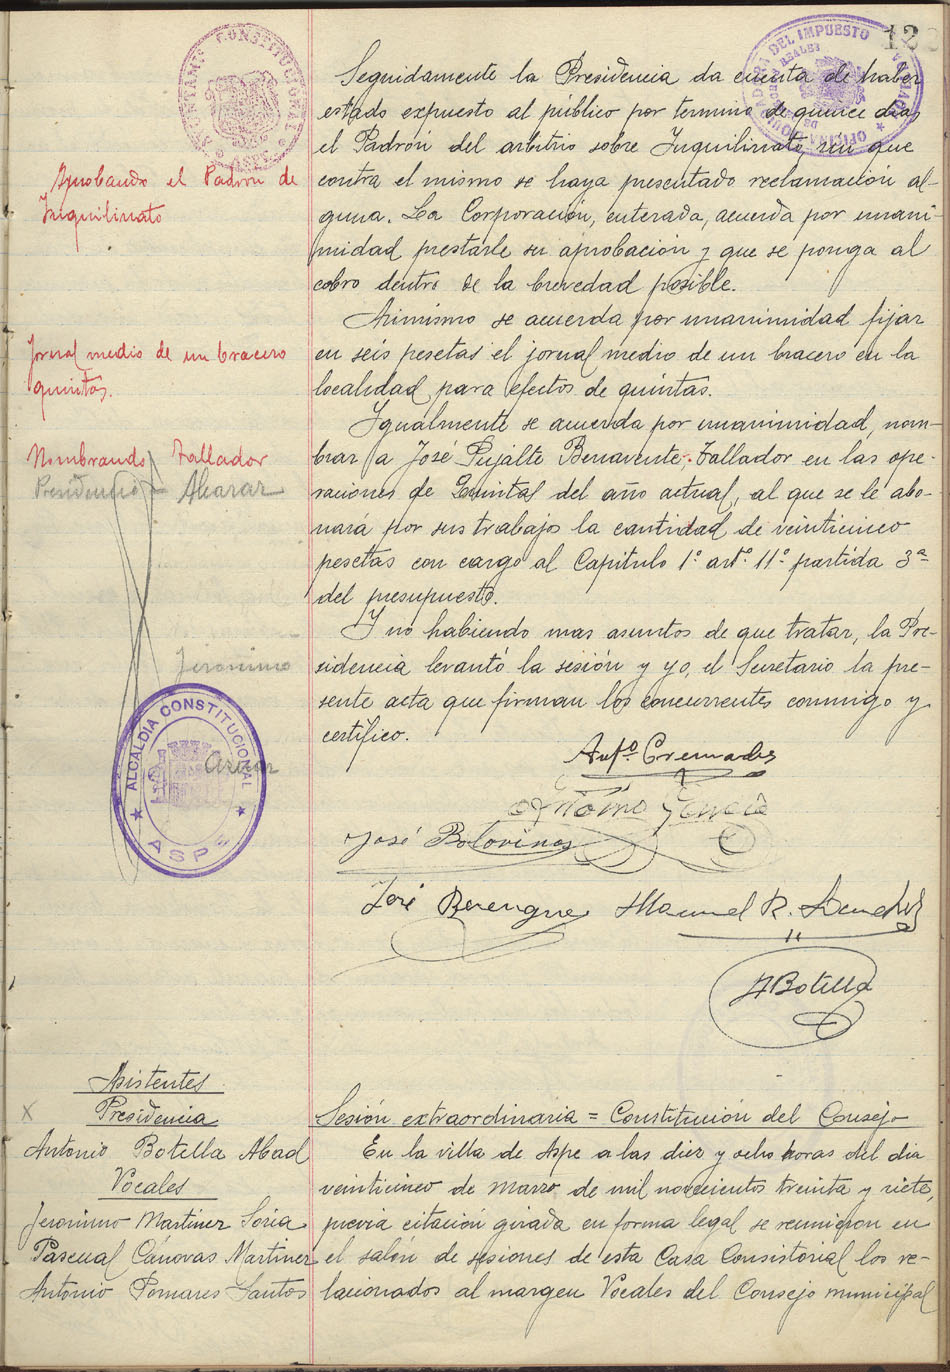 12
Seguidamente la Presidencia da cuenta de haber
estado expuesto al público por termino de quince dias
el Padrón del arbitrio sobre Inquilinato sin que
contra el mismo se haya presentado reclamación al-
guna. La Corporación, enterada, acuerda por unani-
midad prestarle su aprobación y que se ponga al
cobro dentro de la brevedad posible.
Aprobando el Padrón de
Inquilinato
Asimismo se acuerda por unanimidad fijar
en seis pesetas el jornal medio de un bracero en la
localidad para efectos de quintas.
Jornal medio de un bracero
quintas.
Igualmente se acuerda por unanimidad, nom-
brar a José Pujalte Benavente, Tallador en las ope-
raciones de Quintas del año actual, al que se le abo-
nará por sus trabajos la cantidad de veinticinco
pesetas con cargo al Capitulo 1º artº 11º partida 3ª
del presupuesto.
Nombrando Tallador
Presidencia
Y no habiendo mas asuntos de que tratar, la Pre-
sidencia levantó la sesión y yo, el Secretario la pre-
sente acta que firman los concurrentes conmigo y
certifico.
Jeronimo
ALCALDÍA CONSTITUCIONAL
ASPE
Antº Cremades
Antonio García
José Bolovinos
José Berengue Manuel R. Sanchez
A Botella
Asistentes
Presidencia
Antonio Botella Abad
Vocales
Jeronimo Martinez Soria
Pascual Cánovas Martinez
Antonio Pomares Santos
Sesión extraordinaria = Constitución del Consejo
En la villa de Aspe a las diez y ocho horas del dia
veinticinco de marzo de mil novecientos treinta y siete,
previa citación girada en forma legal se reunieron en
el salón de sesiones de esta Casa Consistorial los re-
lacionados al margen Vocales del Consejo municipal